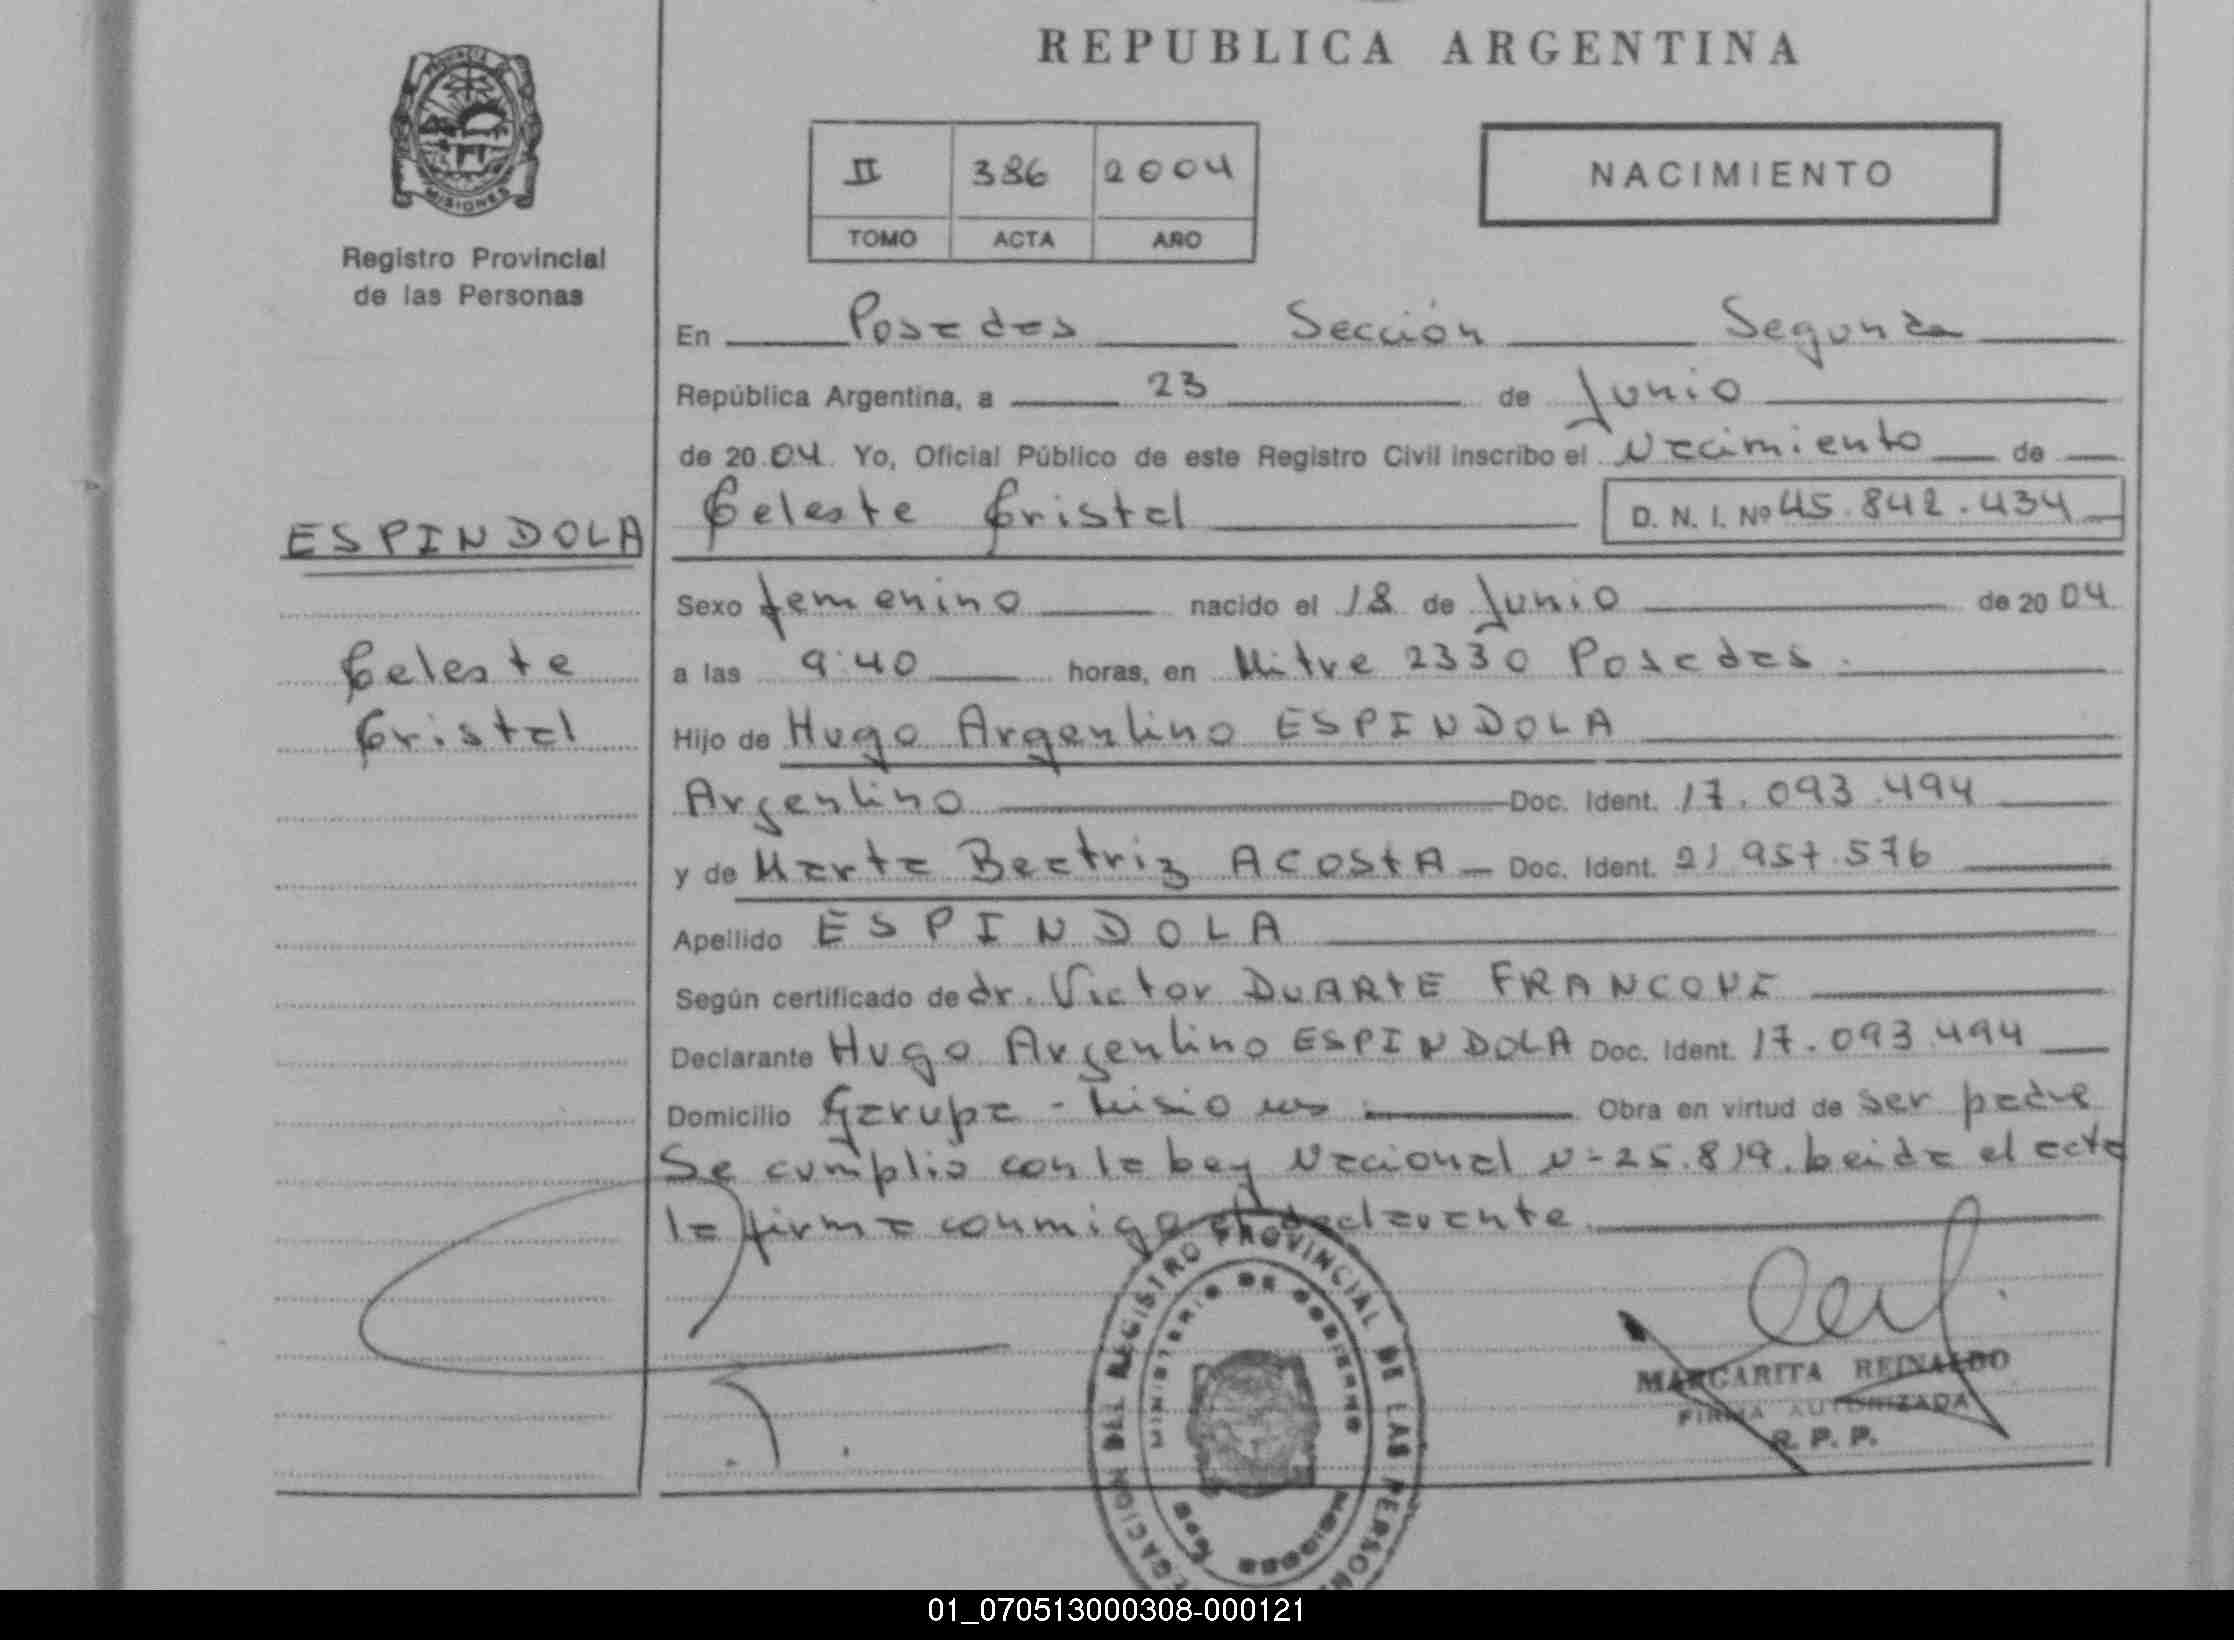 PROVINCIA DE
MISIONES
Registro Provincial
de las Personas
ESPINDOLA
Celeste
Cristal
REPUBLICA ARGENTINA
II 386 2004
TOMO ACTA AÑO
NACIMIENTO
En Posadas Sección Segunda
República Argentina, a 23 de Junio
de 2004 Yo, Oficial Público de este Registro Civil inscribo el Nacimiento de
Celeste Cristal D. N. I. Nº 45.842.434
Sexo femenino nacido el 18 de Junio de 2004
a las 9:40 horas, en Mitre 2330 Posadas.
Hijo de Hugo Argentino ESPINDOLA
Argentino Doc. Ident. 17.093.494
y de Marta Beatriz ACOSTA Doc. Ident. 21 957.576
Apellido ESPINDOLA
Según certificado de dr. Victor DUARTE
Declarante Hugo Argentino ESPINDOLA Doc. Ident. 17.093.494
Domicilio Garupa - Misiones. Obra en virtud de ser padre
Se cumplio con la Ley Nacional Nº 25.819. Leida el acta
la firma conmigo el declarante.
DELEGACION DEL REGISTRO PROVINCIAL DE LAS PERSONAS
MINISTERIO DE GOBIERNO
MARGARITA REINALDO
FIRMA AUTORIZADA
R. P. P.
01_070513000308-000121